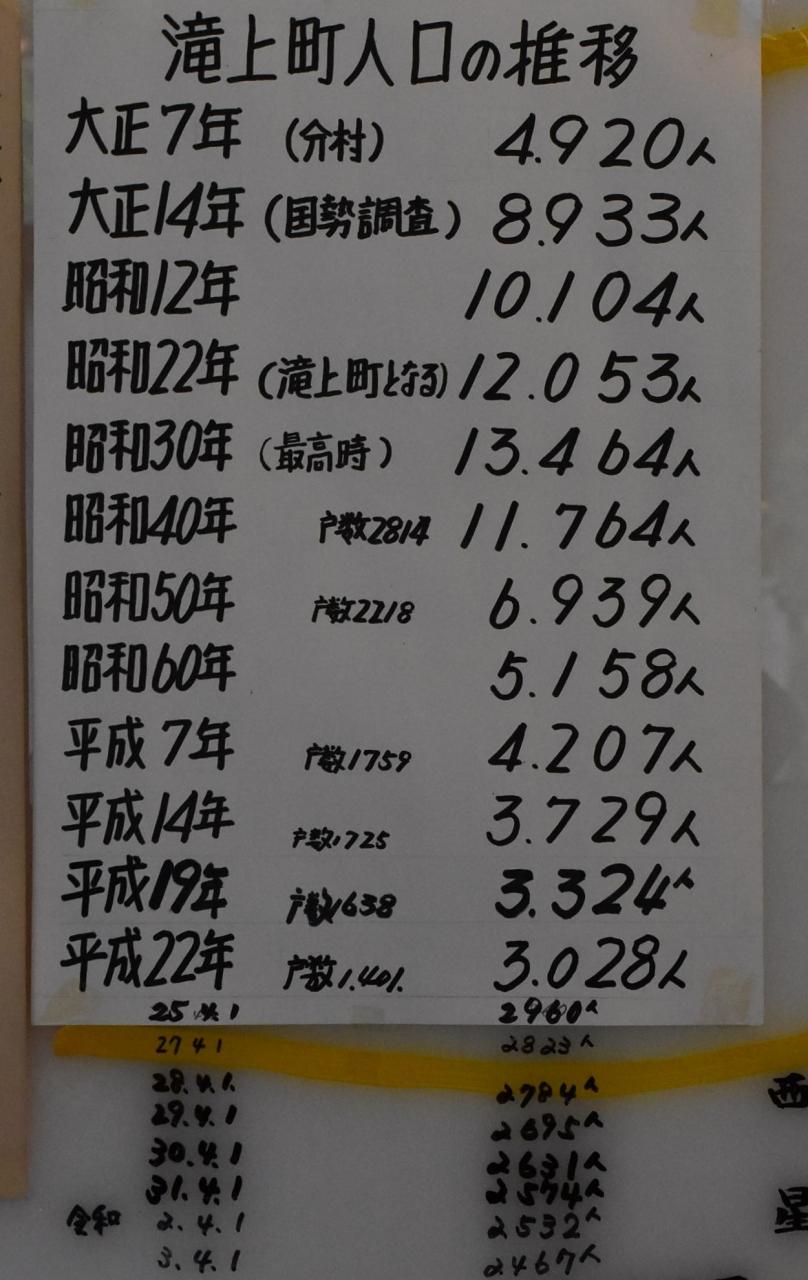 滝上町人口の推移
大正7年 (分村) 4.920人
大正14年 (国勢調査) 8.933人
昭和12年 10.104人
昭和22年 (滝上町となる) 12.053人
昭和30年 (最高時) 13.464人
昭和40年 户数2814 11.764人
昭和50年 户数2218 6.939人
昭和60年 5.158人
平成7年 户数1759 4.207人
平成14年 户数1725 3.729人
平成19年 户数1638 3.324人
平成22年 户数1.401. 3.028人
25.4.1 2960人
27 4 1 2823人
28.4.1. 2784人
29.4.1 2695人
30.4.1 2631人
31.4.1 2574人
令和 2.4.1 2532人
3.4.1 2467人
西
星